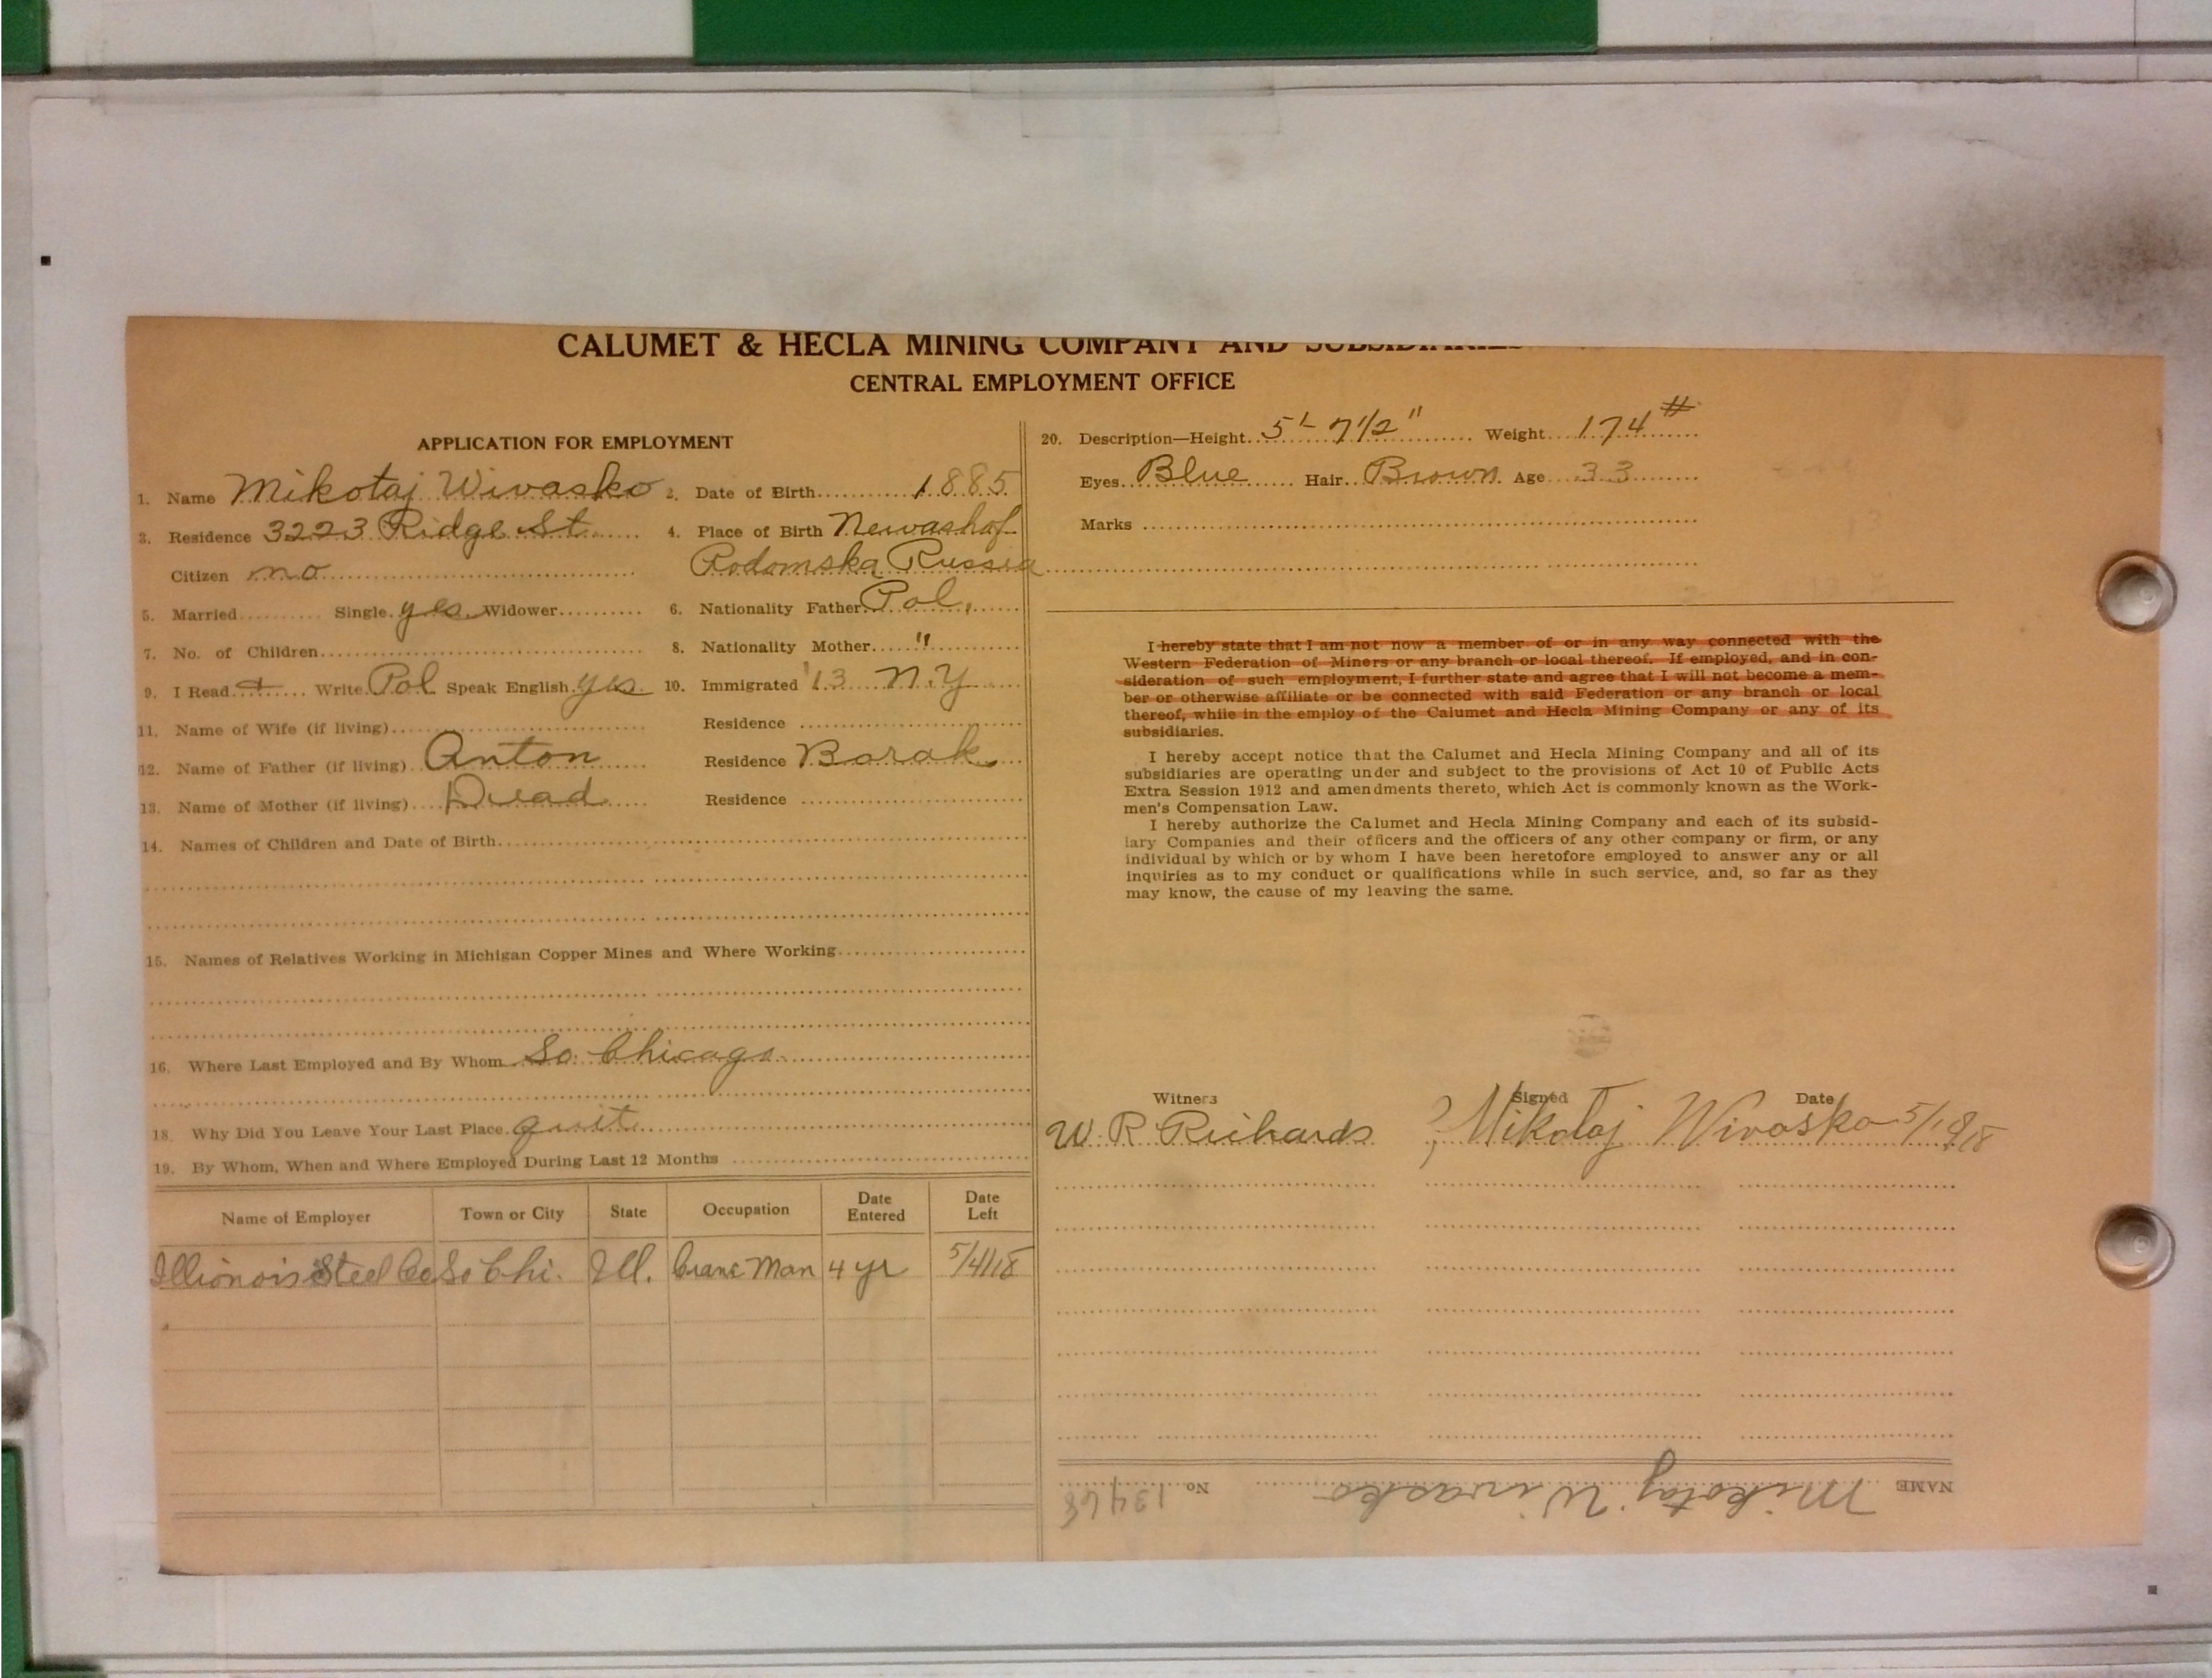 CALUMET & HECLA MINING COMPANY AND SUBSIDIARIES
CENTRAL EMPLOYMENT OFFICE
APPLICATION FOR EMPLOYMENT
1. Name Mikotaj Wivasko 2. Date of Birth 1885
3. Residence 3223 Ridge St. 4. Place of Birth Newashof
Citizen no Rodomska Russia
5. Married Single yes Widower 6. Nationality Father Pol.
7. No. of Children 8. Nationality Mother "
9. I Read + Write Pol Speak English yes 10. Immigrated '13 N.Y
11. Name of Wife (if living) Residence
12. Name of Father (if living) Anton Residence Borak
13. Name of Mother (if living) Dead Residence
14. Names of Children and Date of Birth
15. Names of Relatives Working in Michigan Copper Mines and Where Working
16. Where Last Employed and By Whom So. Chicago
18. Why Did You Leave Your Last Place quit
19. By Whom, When and Where Employed During Last 12 Months
Name of Employer Town or City State Occupation Date Entered Date Left
Illionois Steel Co So Chi. Ill. Crane Man 4 yr 5/4/18
20. Description—Height 5' 7 1/2" Weight 174 #
Eyes Blue Hair Brown Age 33
Marks
I hereby state that I am not now a member of or in any way connected with the
Western Federation of Miners or any branch or local thereof. If employed, and in con-
sideration of such employment, I further state and agree that I will not become a mem-
ber or otherwise affiliate or be connected with said Federation or any branch or local
thereof, while in the employ of the Calumet and Hecla Mining Company or any of its
subsidiaries.
I hereby accept notice that the Calumet and Hecla Mining Company and all of its
subsidiaries are operating under and subject to the provisions of Act 10 of Public Acts
Extra Session 1912 and amendments thereto, which Act is commonly known as the Work-
men's Compensation Law.
I hereby authorize the Calumet and Hecla Mining Company and each of its subsid-
iary Companies and their officers and the officers of any other company or firm, or any
individual by which or by whom I have been heretofore employed to answer any or all
inquiries as to my conduct or qualifications while in such service, and, so far as they
may know, the cause of my leaving the same.
Witness Signed Date
W. R Richards Mikolaj Wivosko 5/19/18
NAME Mikotaj Wivasko No. 13468